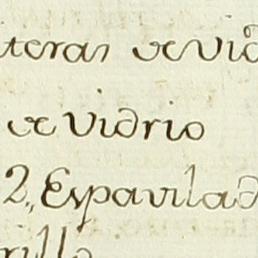 teras de vid
de vidrio
2,, Espavilad
rillo